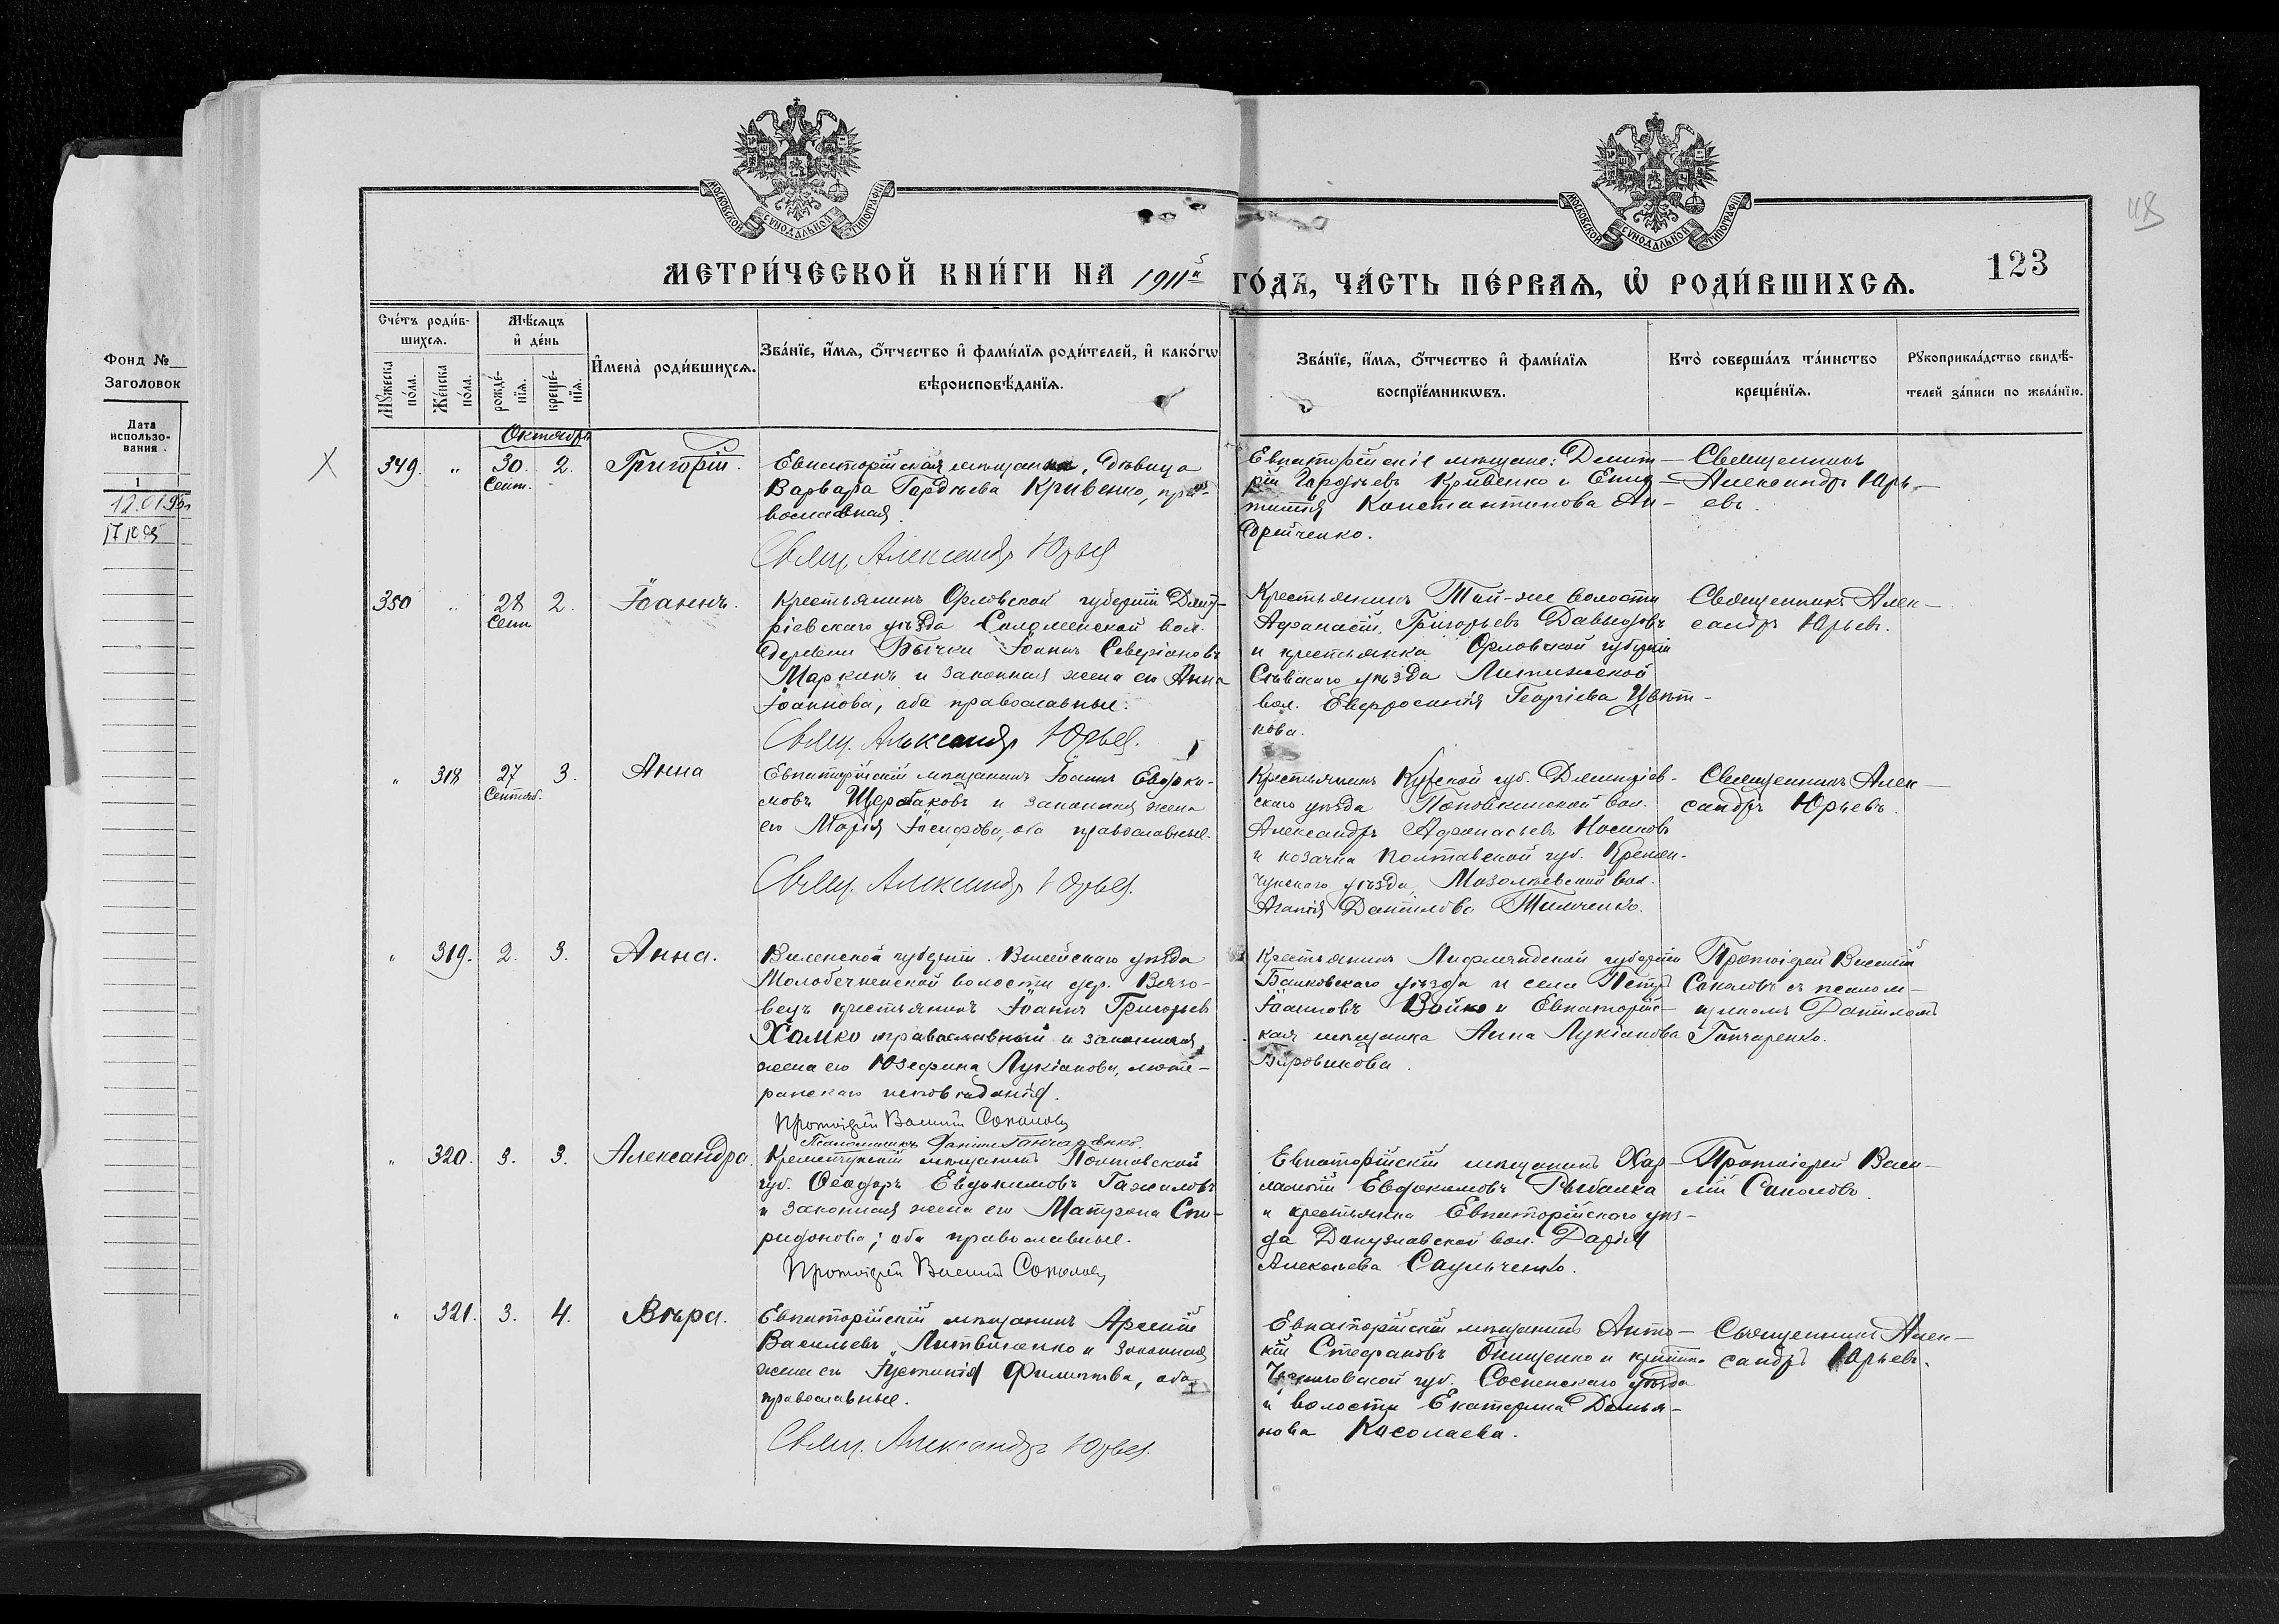 Фонд №
Заголовок
Дата
использо-
вания
1
12.01.95
17 10 95
МОСКОВСКОЙ СУНОДАЛЬНОЙ ТИПОГРАФІИ
МОСКОВСКОЙ СУНОДАЛЬНОЙ ТИПОГРАФІИ
118
123
МЕТРИ́ЧЕСКОЙ КНИ́ГИ НА 1911й ГО́ДЪ, ЧА́СТЬ ПЕ́РВАѦ, Ѡ РОДИ́ВШИХСѦ.
Сче́тъ роди́в-
шихсѧ.
Мꙋ́жеска по́ла.
Же́нска по́ла.
Мѣ́сѧцъ
и҆ де́нь
рожде́-нїѧ.
креще́-нїѧ.
И҆мена̀ роди́вшихсѧ.
Зва́нїе, и҆́мѧ, ѻ҆́тчество и҆ фами́лїѧ роди́телей, и҆ како́гѡ
вѣроисповѣ́данїѧ.
Зва́нїе, и҆́мѧ, ѻ҆́тчество и҆ фами́лїѧ
воспрїе́мникѡвъ.
Кто̀ соверша́лъ та́инство
креще́нїѧ.
Рꙋкоприкла́дство свидѣ́-
телей за́писи по жела́нїю.
Октябрь
349. " 30. 2. Григорій.
Сент.
Евпаторійская мѣщанка, дѣвица
Варвара Гордѣева Кривенко, пра-
вославная.
Свящ. Александръ Юрьев
Евпаторійскіе мѣщане: Димит-
рій Гордѣевъ Кривенко и
Константинова Ан-
дрейченко.
Священникъ
Александръ Юрь-
евъ.
350 " 28 2. Іоаннъ.
Сент.
Крестьянинъ Орловской губерніи Дмит-
ріевскаго уѣзда Соломенской вол.
деревни Бычки Іоаннъ Северіановъ
Маркинъ и законная жена его Анна
Іоаннова, оба православные.
Свящ. Александръ Юрьев.
Крестьянинъ Той-же волости
Афанасій Григорьевъ Давыдовъ
и крестьянка Орловской губерніи
Сѣвскаго уѣзда Литижской
вол. Евфросинія Георгіева Цвѣт-
кова.
Священникъ Алек-
сандръ Юрьевъ.
" 318 27 3. Анна
Сентяб.
Евпаторійскій мѣщанинъ Іоаннъ Евдоки-
мовъ Щербаковъ и законная жена
его Марія Іосифова, оба православные.
Свящ. Александръ Юрьев.
Крестьянинъ Курской губ. Дмитріев-
скаго уѣзда Поповкинской вол.
Александръ Афонасьевъ Носиковъ
и козачка Полтавской губ. Кремен-
чугскаго уѣзда, Мозолѣевской вол.
Агапія Даніилова Тимченко.
Священникъ Алек-
сандръ Юрьевъ.
" 319. 2. 3. Анна.
Виленской губерніи. Вилейскаго уѣзда
Молодеченской волости дер. Вязо-
вецъ крестьянинъ Іоаннъ Григорьев
Хомко православный и законная
жена его Юзефина Лукіанова, люте-
ранскаго исповѣданія.
Протоіерей Василій Соколовъ
Псаломщикъ Даніилъ Гончаренко
Крестьянинъ Лифляндской губерніи
уѣзда и села Петръ
Іоанновъ Войко и Евпаторійс-
кая мѣщанка Анна Лукіанова
Боровикова.
Протоіерей Василій
Соколовъ съ псалом-
щикомъ Даніиломъ
Гончаренко.
" 320. 3. 3. Александра.
Кременчугскій мѣщанинъ Полтавской
губ. Ѳеодоръ Евдокимовъ Гажиловъ
и законная жена его Матрона Спи-
ридонова; оба православные.
Протоіерей Василій Соколовъ
Евпаторійскій мѣщанинъ Хар-
лампій Евдокимовъ Рыбалка
и крестьянка Евпаторійскаго уѣз-
да Донузлавской вол. Дарія
Алексѣева Саульченко.
Протоіерей Васи-
лій Соколовъ.
" 321. 3. 4. Вѣра.
Евпаторійскій мѣщанинъ Арсеній
Васильевъ Литвиненко и законная
жена его Іустинія Филиппова, оба
православные.
Свящ. Александръ Юрьев.
Евпаторійскій мѣщанинъ Анто-
ній Стефановъ Онищенко и
Черниговской губ. Сосненскаго уѣзда
и волости Екатерина Демья-
нова Косолаева.
Священникъ Алек-
сандръ Юрьевъ.